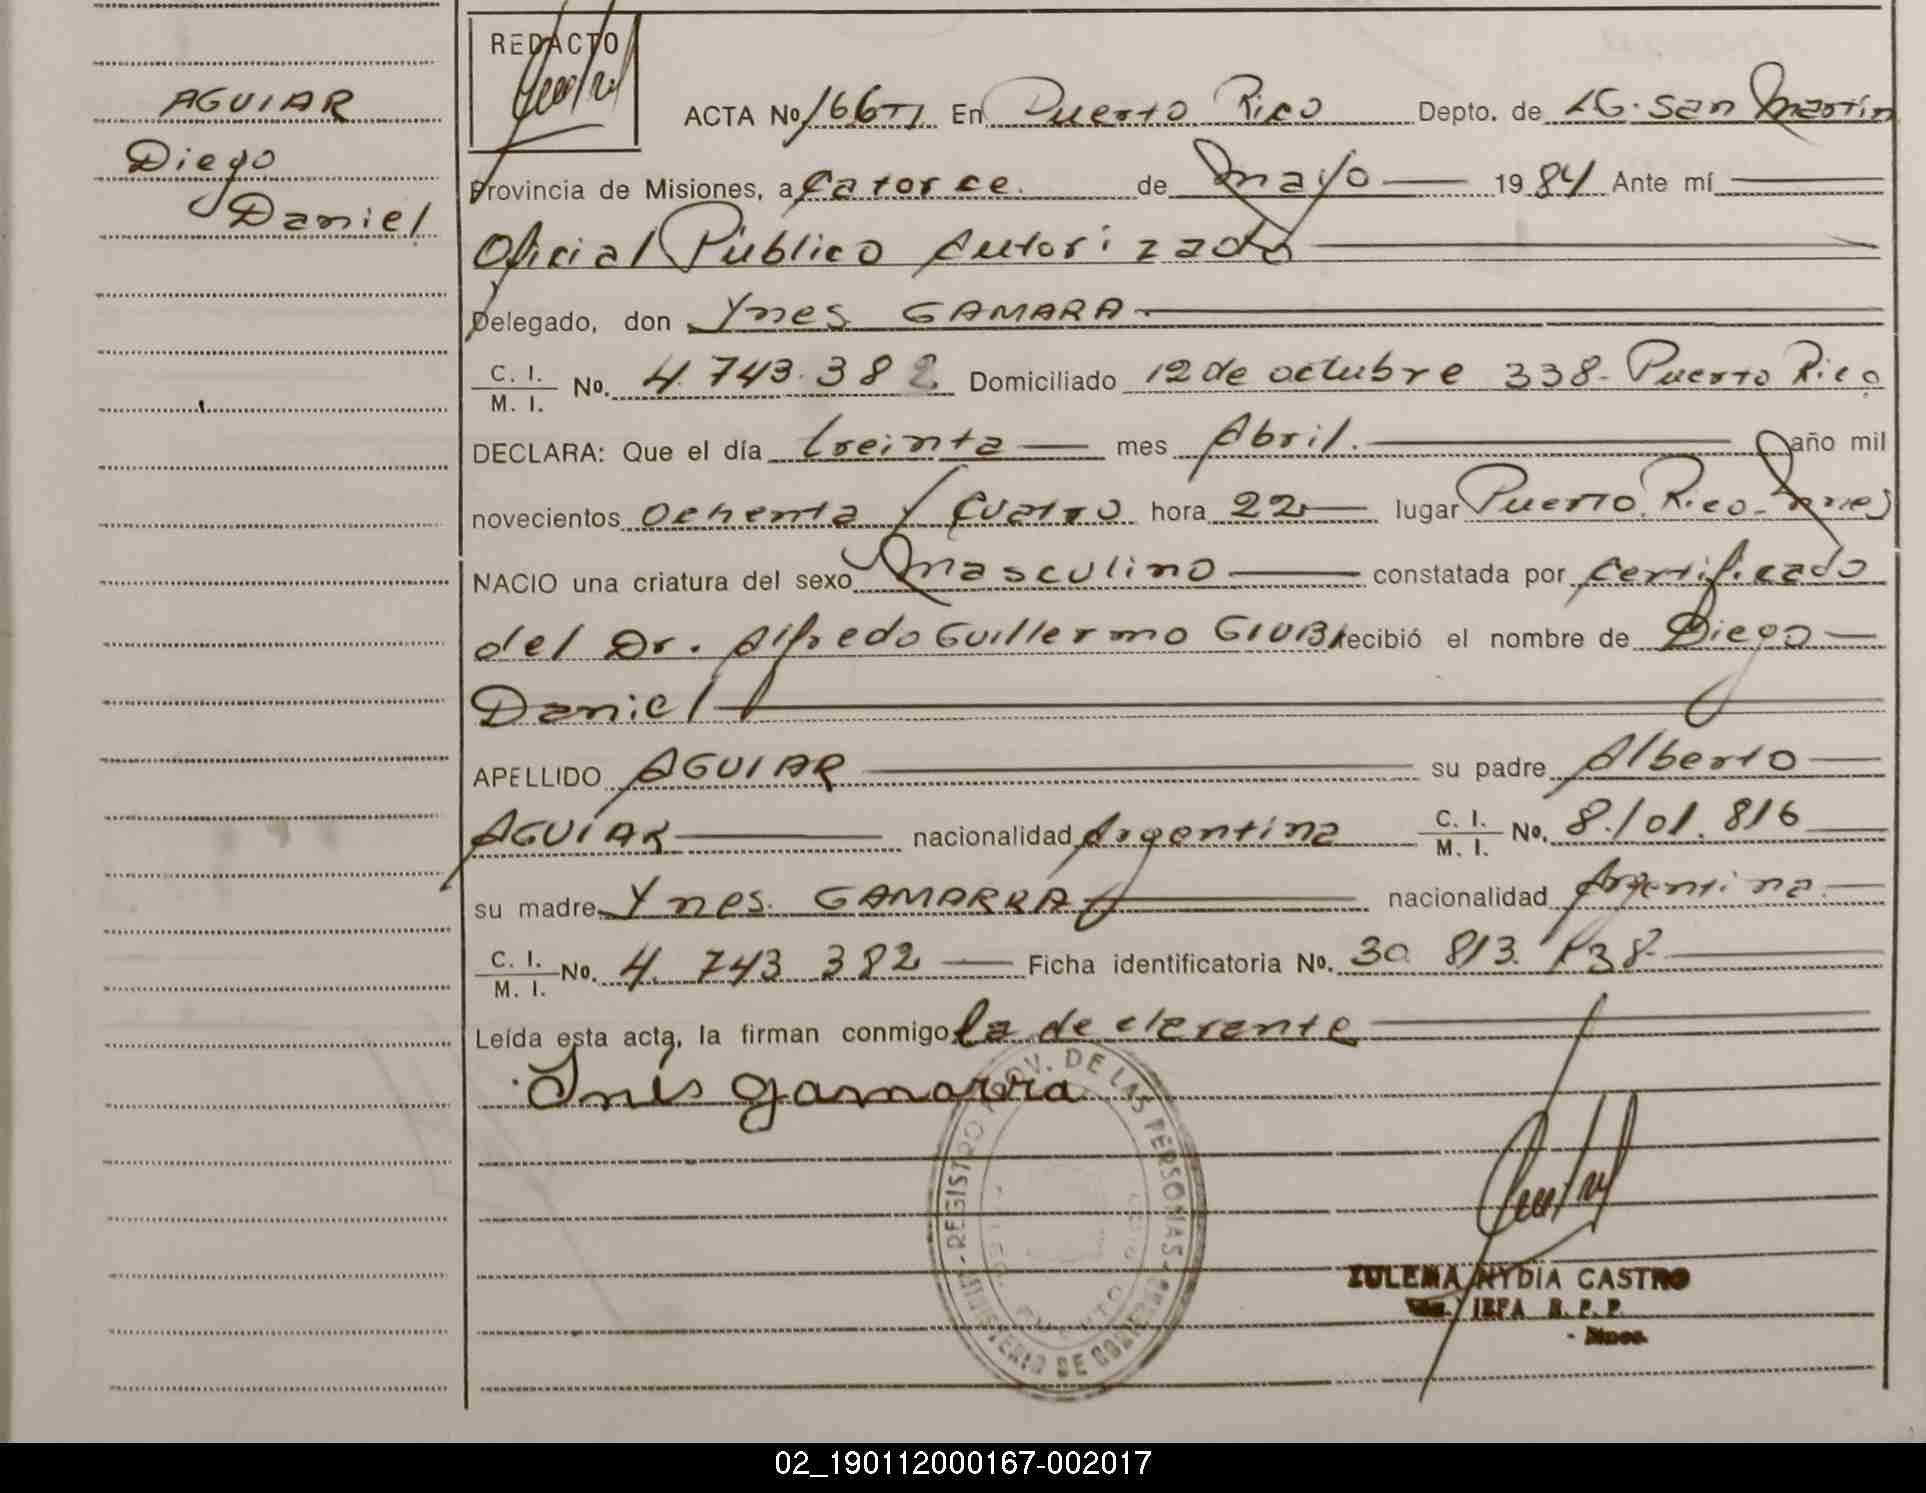 AGUIAR
Diego
Daniel
REDACTO
ACTA No 166 TI En Puerto Rico Depto. de LG. San Martín
Provincia de Misiones, a catorce. de mayo 1984 Ante mí
Oficial Público Autorizado
Delegado, don Ynes GAMARA
C. I. / M. I. No. 4.743.382 Domiciliado 12 de octubre 338- Puerto Rico
DECLARA: Que el día treinta mes Abril. año mil
novecientos ochenta y cuatro hora 22 lugar Puerto Rico-
NACIO una criatura del sexo masculino constatada por certificado
del Dr. Alfredo Guillermo GIUBI recibió el nombre de Diego
Daniel
APELLIDO AGUIAR su padre Alberto
AGUIAR nacionalidad Argentina C. I. / M. I. No. 8.101.816
su madre Ynes. GAMARRA nacionalidad Argentina.
C. I. / M. I. No. 4. 743 382 Ficha identificatoria No. 30 813. 138-
Leída esta acta, la firman conmigo la declarante
Inés Gamarra
REGISTRO PROV. DE LAS PERSONAS - MINISTERIO DE GOBIERNO
ZULEMA NYDIA CASTRO
JEFA R. P. P.
02_190112000167-002017